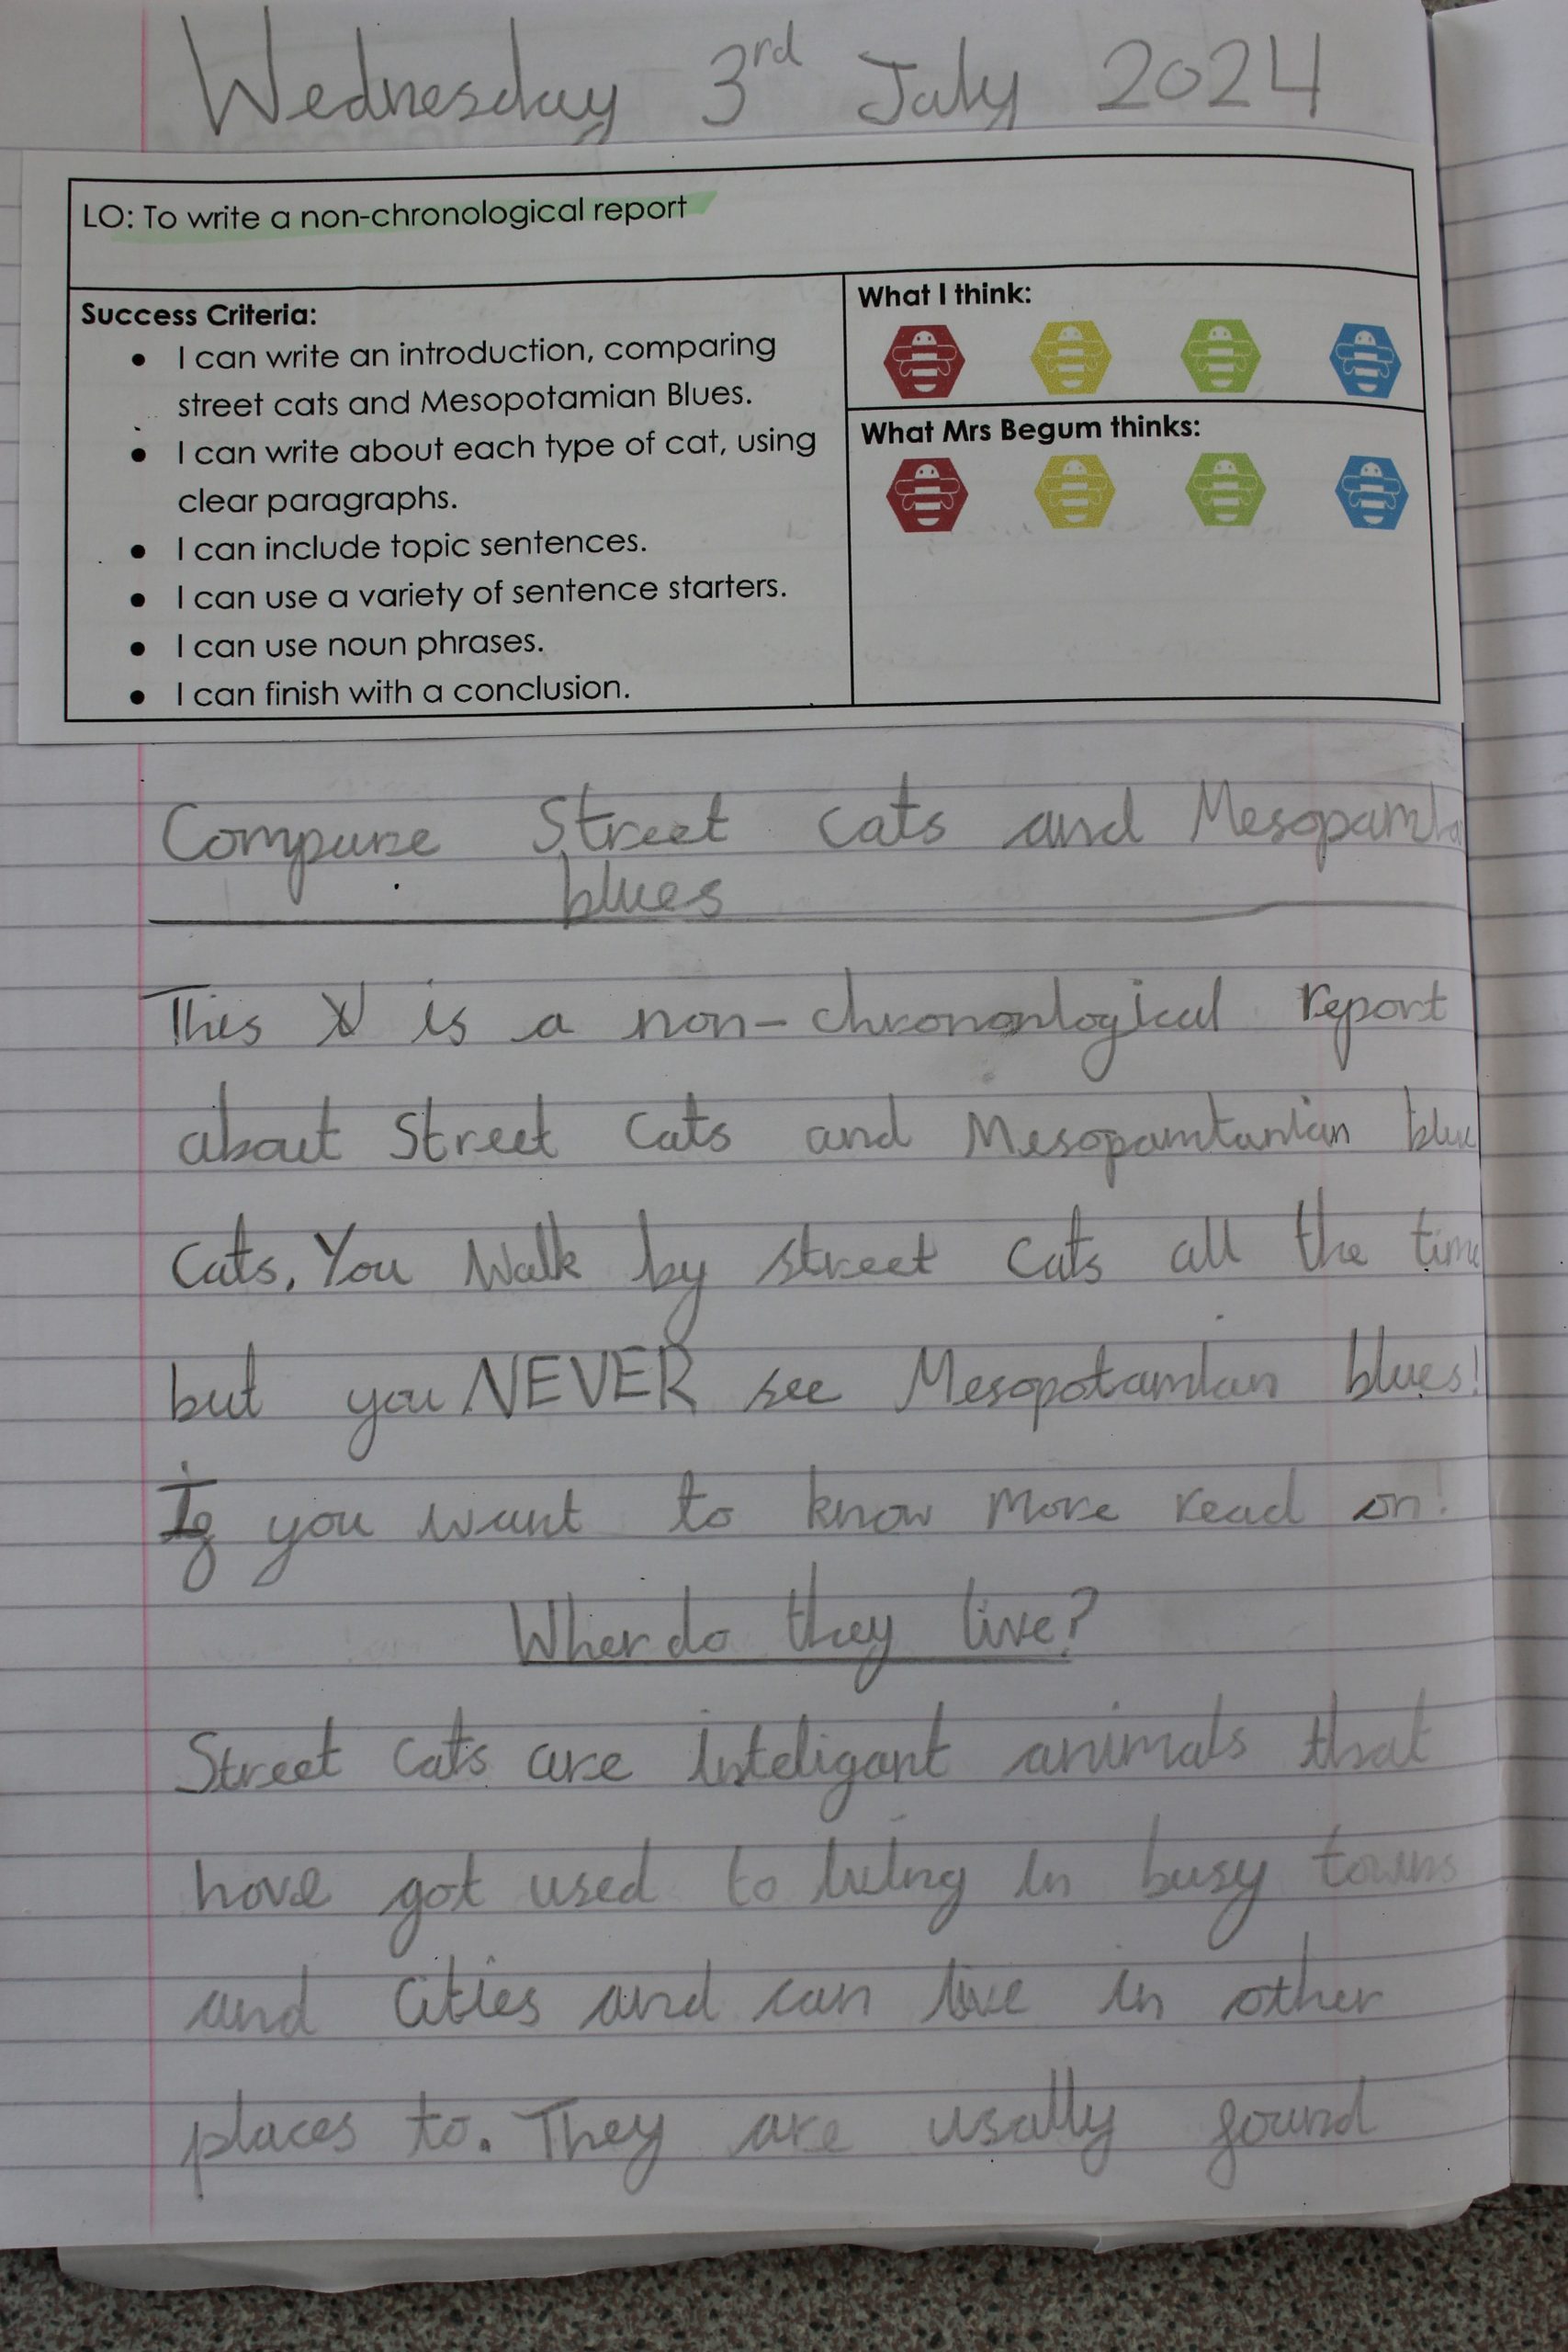 Wednesday 3rd July 2024
LO: To write a non-chronological report
Success Criteria:
• I can write an introduction, comparing
street cats and Mesopotamian Blues.
• I can write about each type of cat, using
clear paragraphs.
• I can include topic sentences.
• I can use a variety of sentence starters.
• I can use noun phrases.
• I can finish with a conclusion.
What I think:
What Mrs Begum thinks:
Compare Street cats and
blues
This is a non-chrononlogical report
about Street Cats and Mesopamtanian blue
Cats. You Walk by street cats all the time
but you NEVER see Mesopotamian blues!
If you want to know more read on!
Wher do they live?
Street cats are inteligant animals that
have got used to living in busy towns
and cities and can live in other
places to. They are usally found